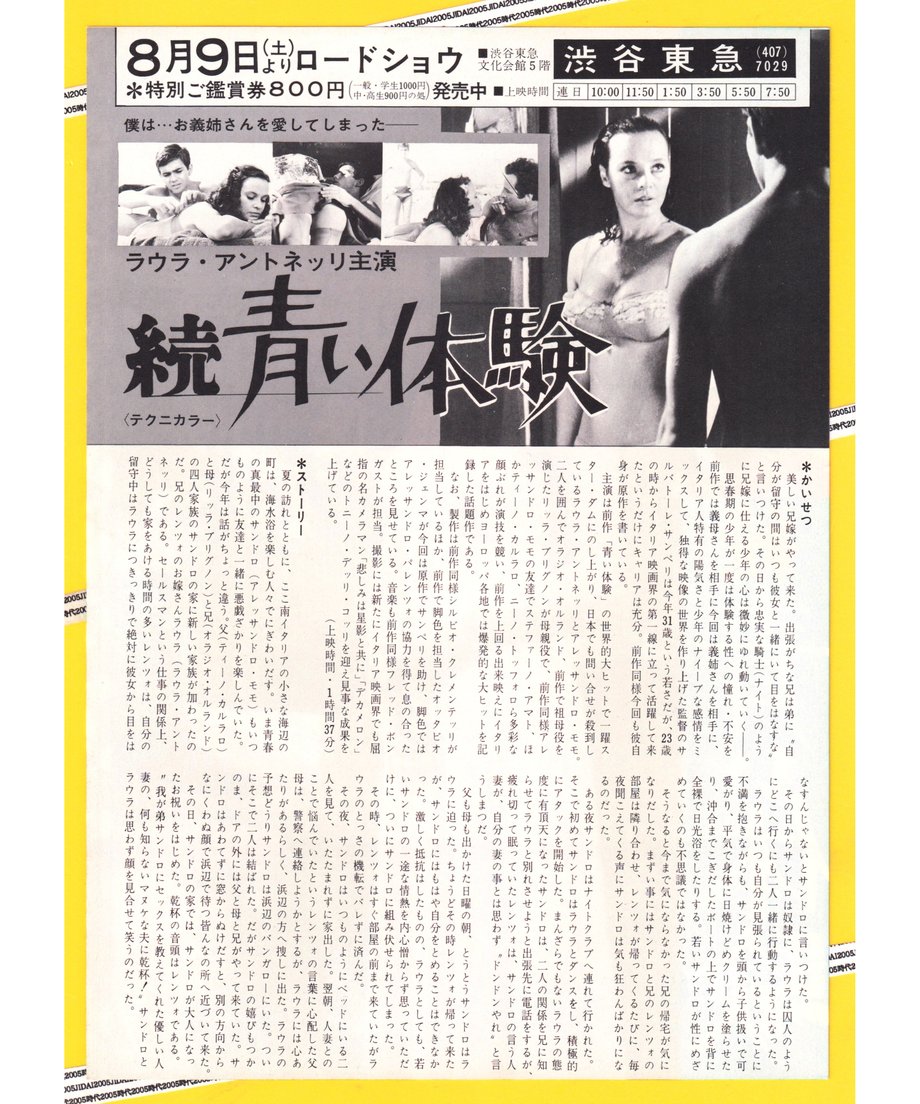 8月9日(土)よりロードショウ
■渋谷東急
文化会館5階
渋谷東急 (407)7029
＊特別ご鑑賞券800円(一般・学生1000円 中・高生900円の処)発売中
■上映時間 連日 10:00 11:50 1:50 3:50 5:50 7:50
僕は…お義姉さんを愛してしまった――
ラウラ・アントネッリ主演
続青い体験
〈テクニカラー〉
＊かいせつ
美しい兄嫁がやって来た。出張がちな兄は弟に〝自
分が留守の間はいつも彼女と一緒にいて目をはなすな〟
と言いつけた。その日から忠実な騎士（ナイト）のよう
に兄嫁に仕える少年の心は微妙にゆれ動いていく――。
思春期の少年が一度は体験する性への憧れ・不安を
前作では義母さんを相手に今回は義姉さんを相手に、
イタリア人特有の陽気さと少年のナイーブな感情をミ
ックスして、独得な映像の世界を作り上げた監督のサ
ルバトーレ・サンペリは今年31歳という若さだが23歳
の時からイタリア映画界の第一線に立って活躍して来
たというだけにキャリアは充分。前作同様今回も彼自
身が原作を書いている。
主演は前作「青い体験」の世界的大ヒットで一躍ス
ター・ダムにのし上がり、日本でも問い合せが殺到し
ているラウラ・アントネッリとアレッサンドロ・モモ。
二人を囲んでオラジオ・オルランド、前作で祖母役を
演じたリッラ・ブリグノンが母親役で、前作同様アレ
サンドロ・モモの友達でテファー・アマト、ほ
かティーノ・カルラロ、ニーノ・トッフォロら多彩な
顔ぶれが演技を競い、前作を上回る出来映えにイタリ
アをはじめヨーロッパ各地では爆発的な大ヒットを記
録した話題作である。
なお、製作は前作同様シルビオ・クレメンテッリが
担当しているほか、前作で脚色を担当したオッタビオ
・ジェンマが今回は原作でサンペリを助け、脚色では
アレッサンドロ・パレンツォの協力を得て息の合った
ところを見せている。音楽も前作同様フレッド・ボン
ガストが担当。撮影には新たにイタリア映画界でも屈
指の名カメラマン「悲しみは星影と共に」「デカメロン」
などのトニーノ・デッリ・コッリを迎え見事な成果を
上げている。
（上映時間・1時間37分）
＊ストーリー
夏の訪れとともに、ここ南イタリアの小さな海辺の
町は、海水浴を楽しむ人々でにぎわいだす。いま青春
の真最中のサンドロ（アレッサンドロ・モモ）もいつ
ものように友達と一緒に悪戯ざかりを楽しんでいた。
だが今年は話がちょっと違う。父（ティーノ・カルラロ）
と母（リッラ・ブリグノン）と兄（オラジオ・オルランド）
の四人家族のサンドロの家に新しい家族が加わったの
だ。兄のレンツォのお嫁さんラウラ（ラウラ・アント
ネッリ）である。セールスマンという仕事の関係上、
どうしても家をあける時間の多いレンツォは、自分の
留守中はラウラにつきっきりで絶対に彼女から目をは
なすんじゃないとサンドロに言いつけた。
その日からサンドロは奴隷に、ラウラは囚人のよう
にどこへ行くにも二人一緒に行動するようになった。
ラウラはいつも自分が見張られているということに
不満を抱きながらも、サンドロを頭から子供扱いで可
愛がり、平気で身体に日焼けどめクリームを塗らせた
り、沖合までこぎだしたボートの上でサンドロを背に
全裸で日光浴をしたりする。若いサンドロが性にめざ
めていくのも不思議ではなかった。
そうなると今まで気にならなかった兄の帰宅が気に
なりだした。まずい事にはサンドロと兄のレンツォの
部屋は隣り合わせ、レンツォが帰ってくるたびに、毎
夜聞こえてくる声にサンドロは気も狂わんばかりにな
るのだった。
ある夜サンドロはナイトクラブへ連れて行かれた。
そこで初めてサンドロはラウラとダンスをし、積極的
にアタックを開始した。まんざらでもないラウラの態
度に有頂天になったサンドロは、二人の関係を兄に知
らせてラウラと別れさせようと出張先に電話をするが、
疲れ切って眠っていたレンツォは、サンドロの言う人
妻が、自分の妻の事とは思わず〝ドンドンやれ〟と言
うしまつだ。
父も母も出かけた日曜の朝、とうとうサンドロはラ
ウラに迫った。ちょうどその時レンツォが帰って来た
が、サンドロにはもはや自分をとめることはできなか
った。激しく抵抗はしたものの、ラウラとしても、若
いサンドロの一途な情熱を内心憎からず思っていただ
けに、ついにサンドロに組み伏せられてしまった。
その時、レンツォはすぐ部屋の前まで来ていたがラ
ウラのとっさの機転でバレずに済んだ。
その夜、サンドロはいつものようにベッドにいる二
人を見て、いたたまれずに家出した。翌朝、人妻との
ことで悩んでいたというレンツォの言葉に心配した父
母は、警察へ連絡しようかとするが、ラウラには心あ
たりがあるらしく、浜辺の方へ捜しに出た。ラウラの
予想どうりサンドロは浜辺のバンガローにいた。つい
にそこで二人は結ばれた。だがサンドロの嬉びもつか
のま、ドアの外には父と母と兄がやって来ていた。サ
ンドロはあわてずに窓からぬけだすと、別の方向から
なにくわぬ顔で浜辺で待つ皆んなの所へ近づいて来た。
その日、サンドロの家では、サンドロが大人になっ
たお祝いをはじめた。乾杯の音頭はレンツォである。
〝我が弟サンドロにセックスを教えてくれた優しい人
妻の、何も知らないマヌケな夫に乾杯！〟サンドロと
ラウラは思わず顔を見合せて笑うのだった。
2005時代
JIDAI2005